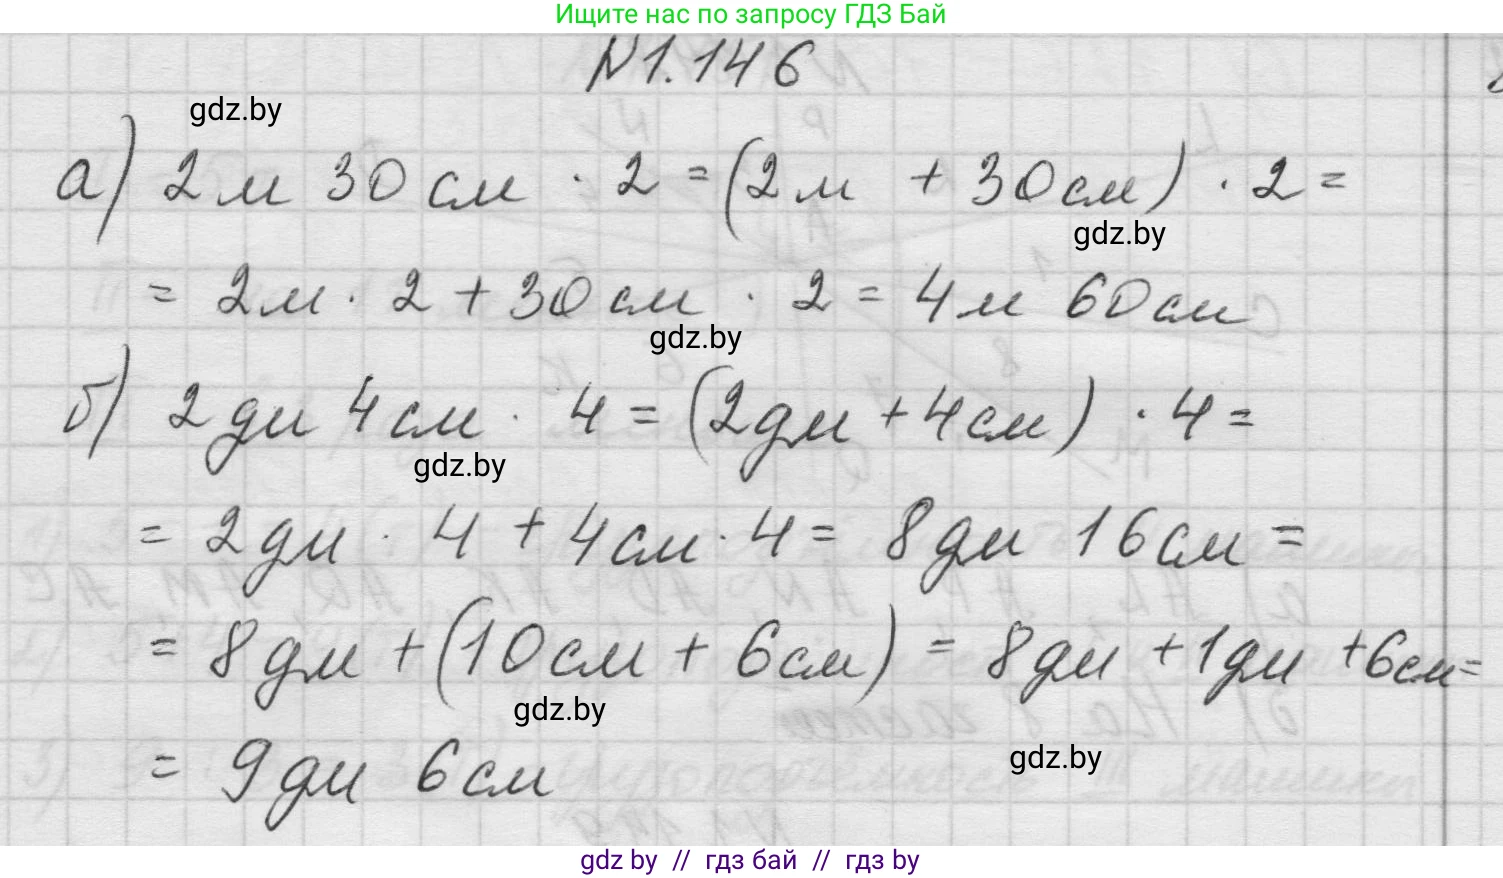 Ищите нас по запросу ГДЗ Бай
N1.146
gdz.by
а) 2м 30см · 2 = (2м + 30см) · 2 =
gdz.by
= 2м · 2 + 30см · 2 = 4м 60см
gdz.by
б) 2дм 4см · 4 = (2дм + 4см) · 4 =
gdz.by
= 2дм · 4 + 4см · 4 = 8дм 16см =
= 8дм + (10см + 6см) = 8дм + 1дм + 6см =
gdz.by
= 9дм 6см
gdz.by
gdz by // гдз бай // гдз by